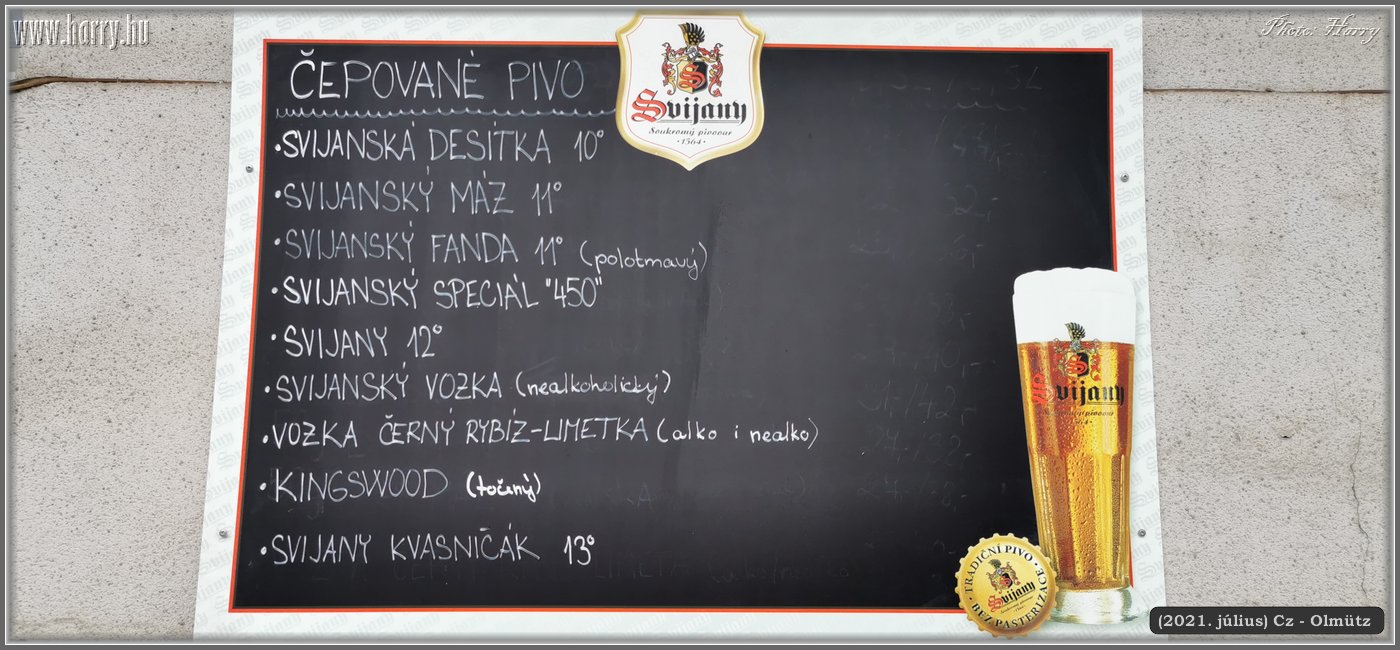 www.harry.hu
Photo: Harry
ČEPOVANÉ PIVO
Svijany
Soukromý pivovar
· 1564 ·
• SVIJANSKÁ DESÍTKA 10°
• SVIJANSKÝ MÁZ 11°
• SVIJANSKÝ FANDA 11° (polotmavý)
• SVIJANSKÝ SPECIÁL "450"
• SVIJANY 12°
• SVIJANSKÝ VOZKA (nealkoholický)
• VOZKA ČERNÝ RYBÍZ-LIMETKA (alko i nealko)
• KINGSWOOD (točený)
• SVIJANY KVASNIČÁK 13°
Svijany
TRADIČNÍ PIVO
Svijany
BEZ PASTERIZACE
(2021. július) Cz - Olmütz